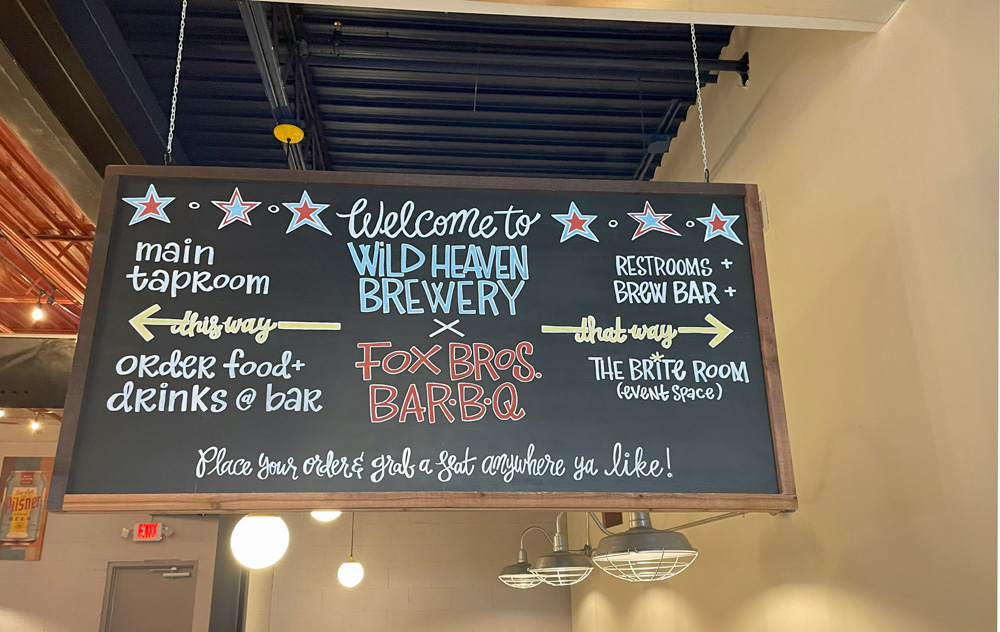 Welcome to
WILD HEAVEN
BREWERY
×
FOX BROS.
BAR·B·Q
main
taproom
this way
order food+
drinks @ bar
RESTROOMS +
BREW BAR +
that way
THE BRITE ROOM
(event space)
Place your order & grab a seat anywhere ya like!
EXIT
Pilsner
BEER